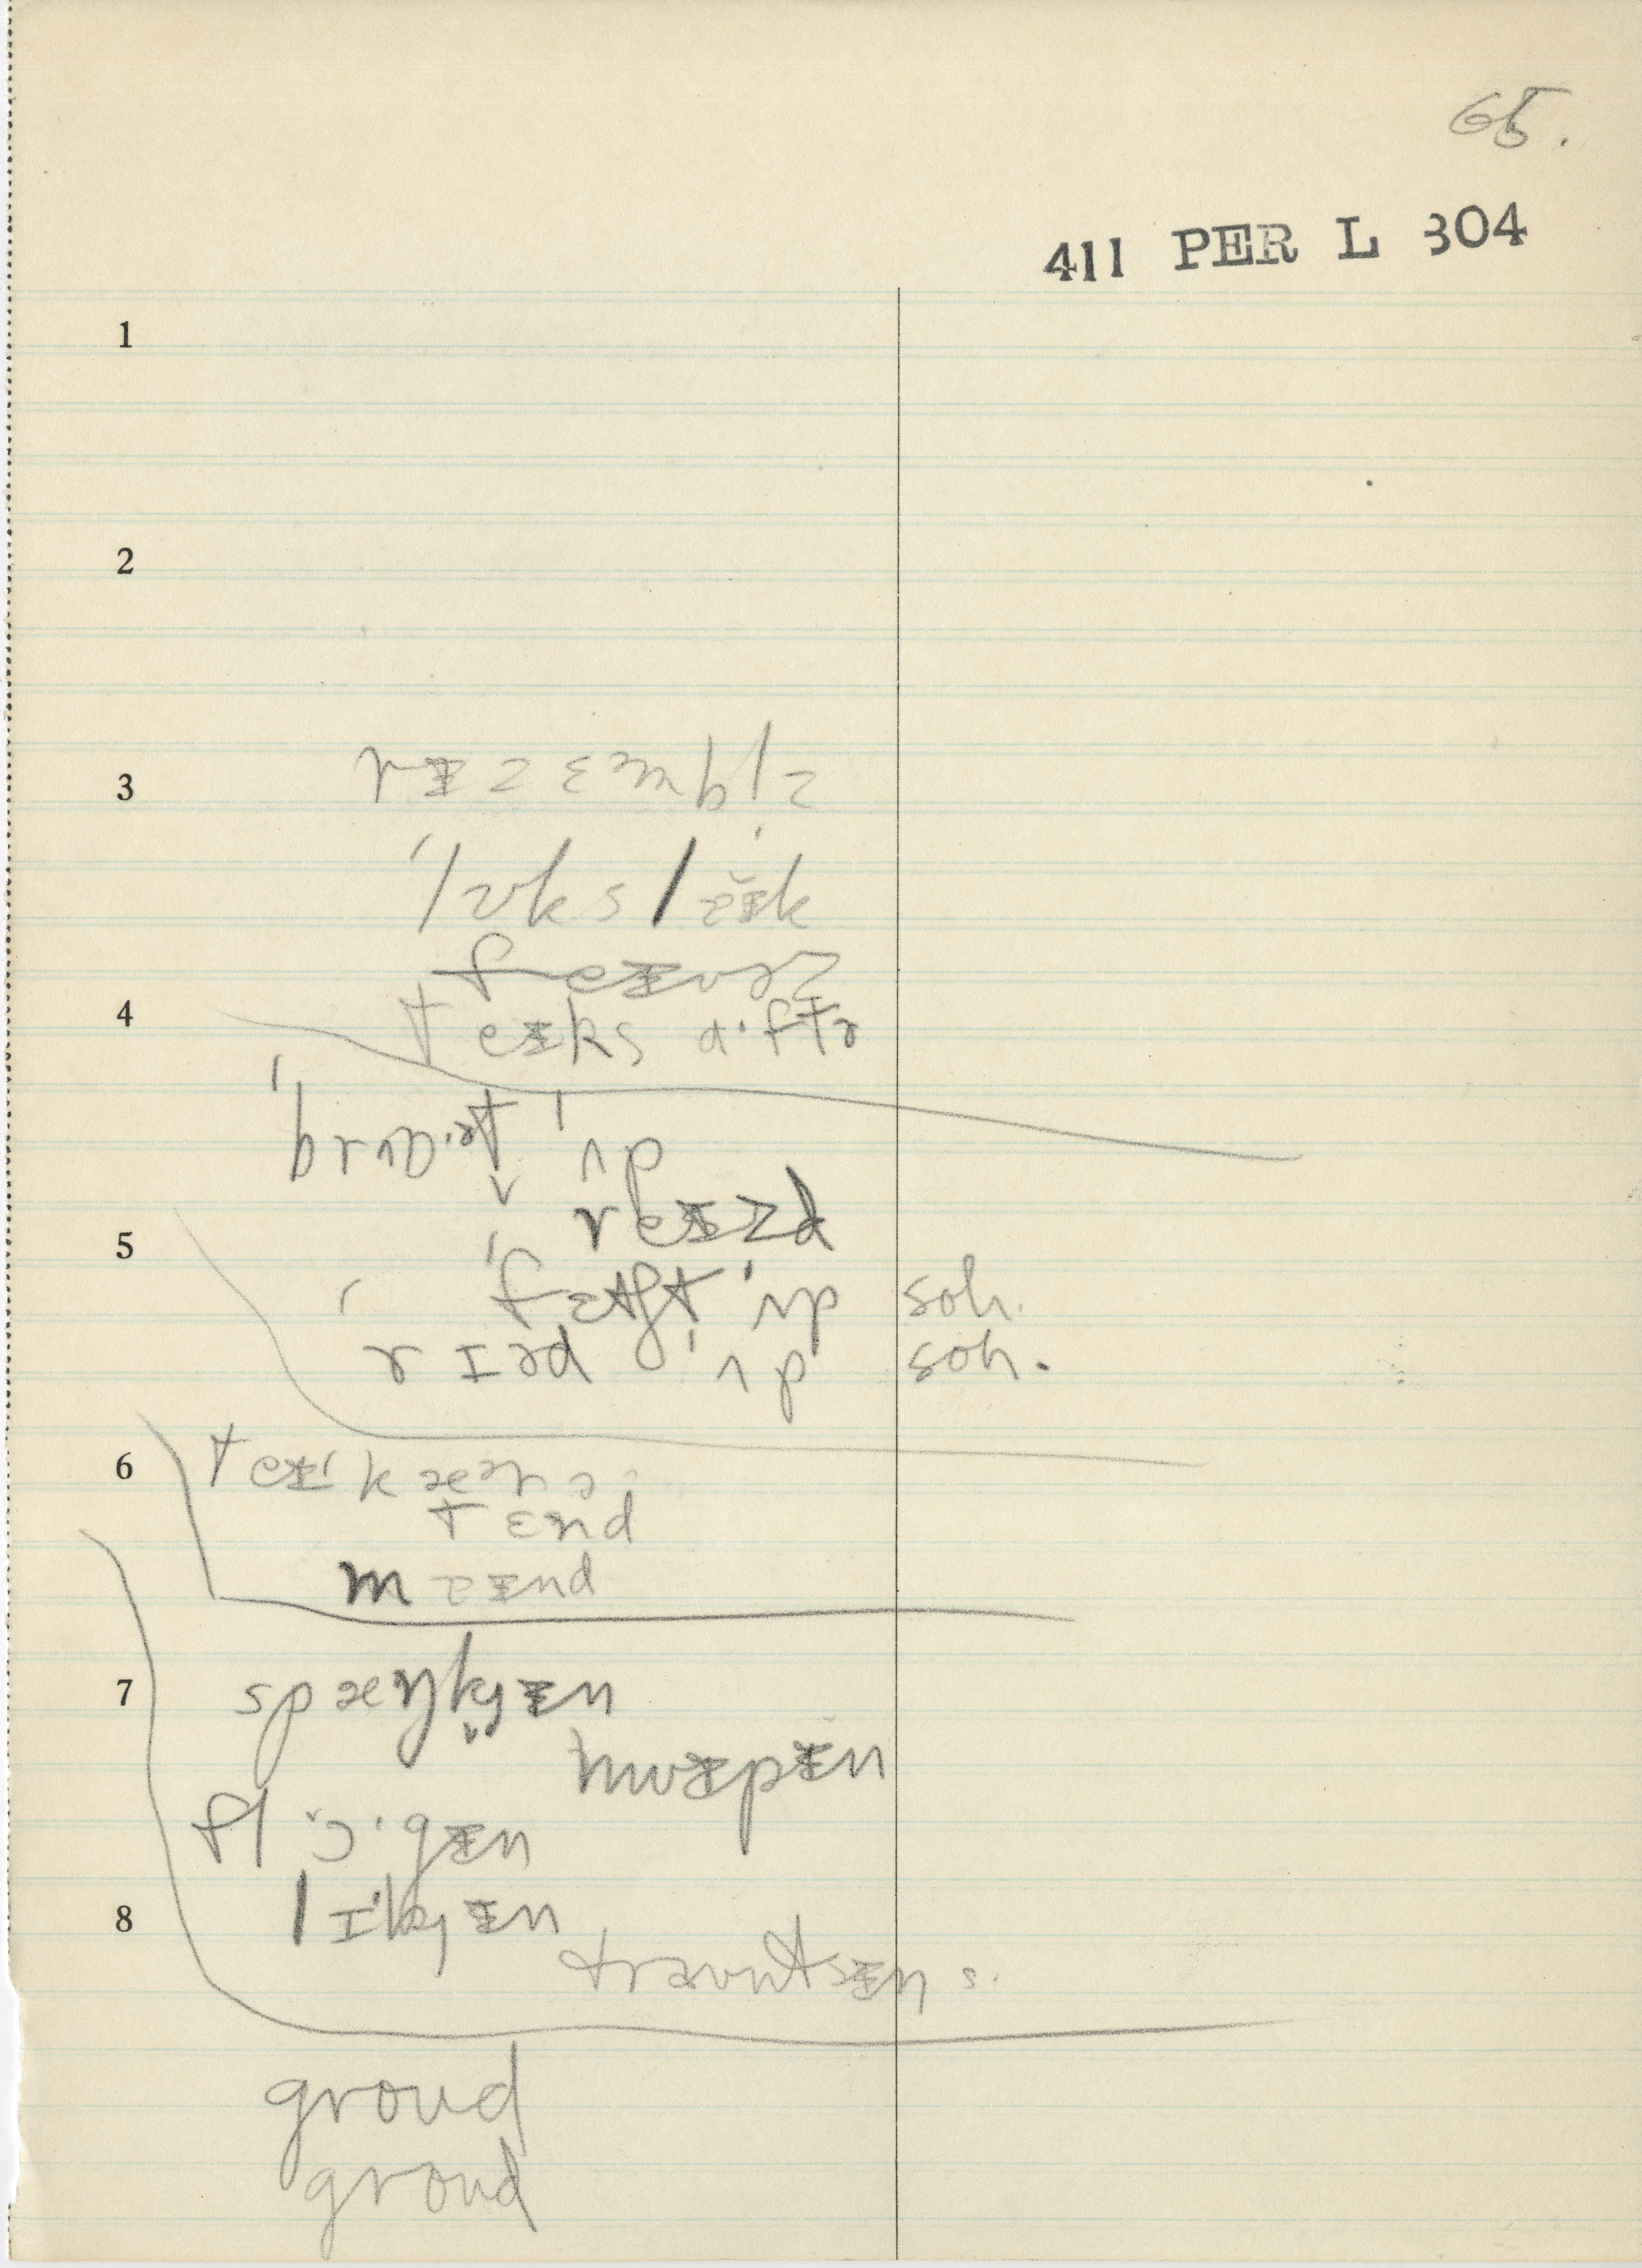 65.
411 PER L 304
1
2
3 rᵻzɛmblz
ˈlʊksˌlaɪk
feɪvəz
4 teɪks aˑftɚ
ˈbrɔˑt ˈʌp
reɪzd
5 ˈfɛtʃt ˈʌp soh.
rɪəd ˈʌp soh.
6 teɪˈkæər ə
tɛnd
maɪnd
7 spæŋkɪn
hwɪpɪn
flɔˑgɪn
8 lɪkɪn
traʊntsɪn s.
groud
groud